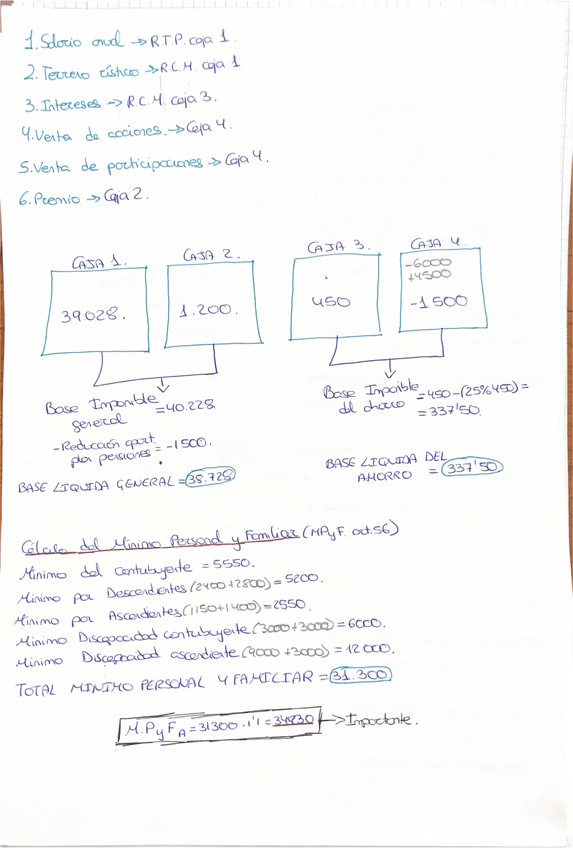 1. Salario anual → R.T.P. caja 1.
2. Terreno rústico → R.C.M. caja 1
3. Intereses → R.C.M. caja 3.
4. Venta de acciones. → Caja 4.
5. Venta de participaciones → Caja 4.
6. Premio → Caja 2.
CAJA 1. CAJA 2. CAJA 3. CAJA 4.
-6000
+4500
39028. 1.200. 450 -1500
Base Imponible general = 40.228
Base Imponible del ahorro = 450-(25% 450) =
= 337'50.
- Reducción aport. por pensiones = -1500.
BASE LIQUIDA GENERAL = 38.728
BASE LIQUIDA DEL AHORRO = 337'50
Cálculo del Mínimo Personal y Familiar (MPyF. art.56)
Mínimo del Contribuyente = 5550.
Mínimo por Descendientes (2400+2800) = 5200.
Mínimo por Ascendientes (1150+1400) = 2550.
Mínimo Discapacidad contribuyente (3000+3000) = 6000.
Mínimo Discapacidad ascendiente (9000+3000) = 12000.
TOTAL MINIMO PERSONAL Y FAMILIAR = 31.300
M.PyF A = 31300 · 1'1 = 34430 → Importante.